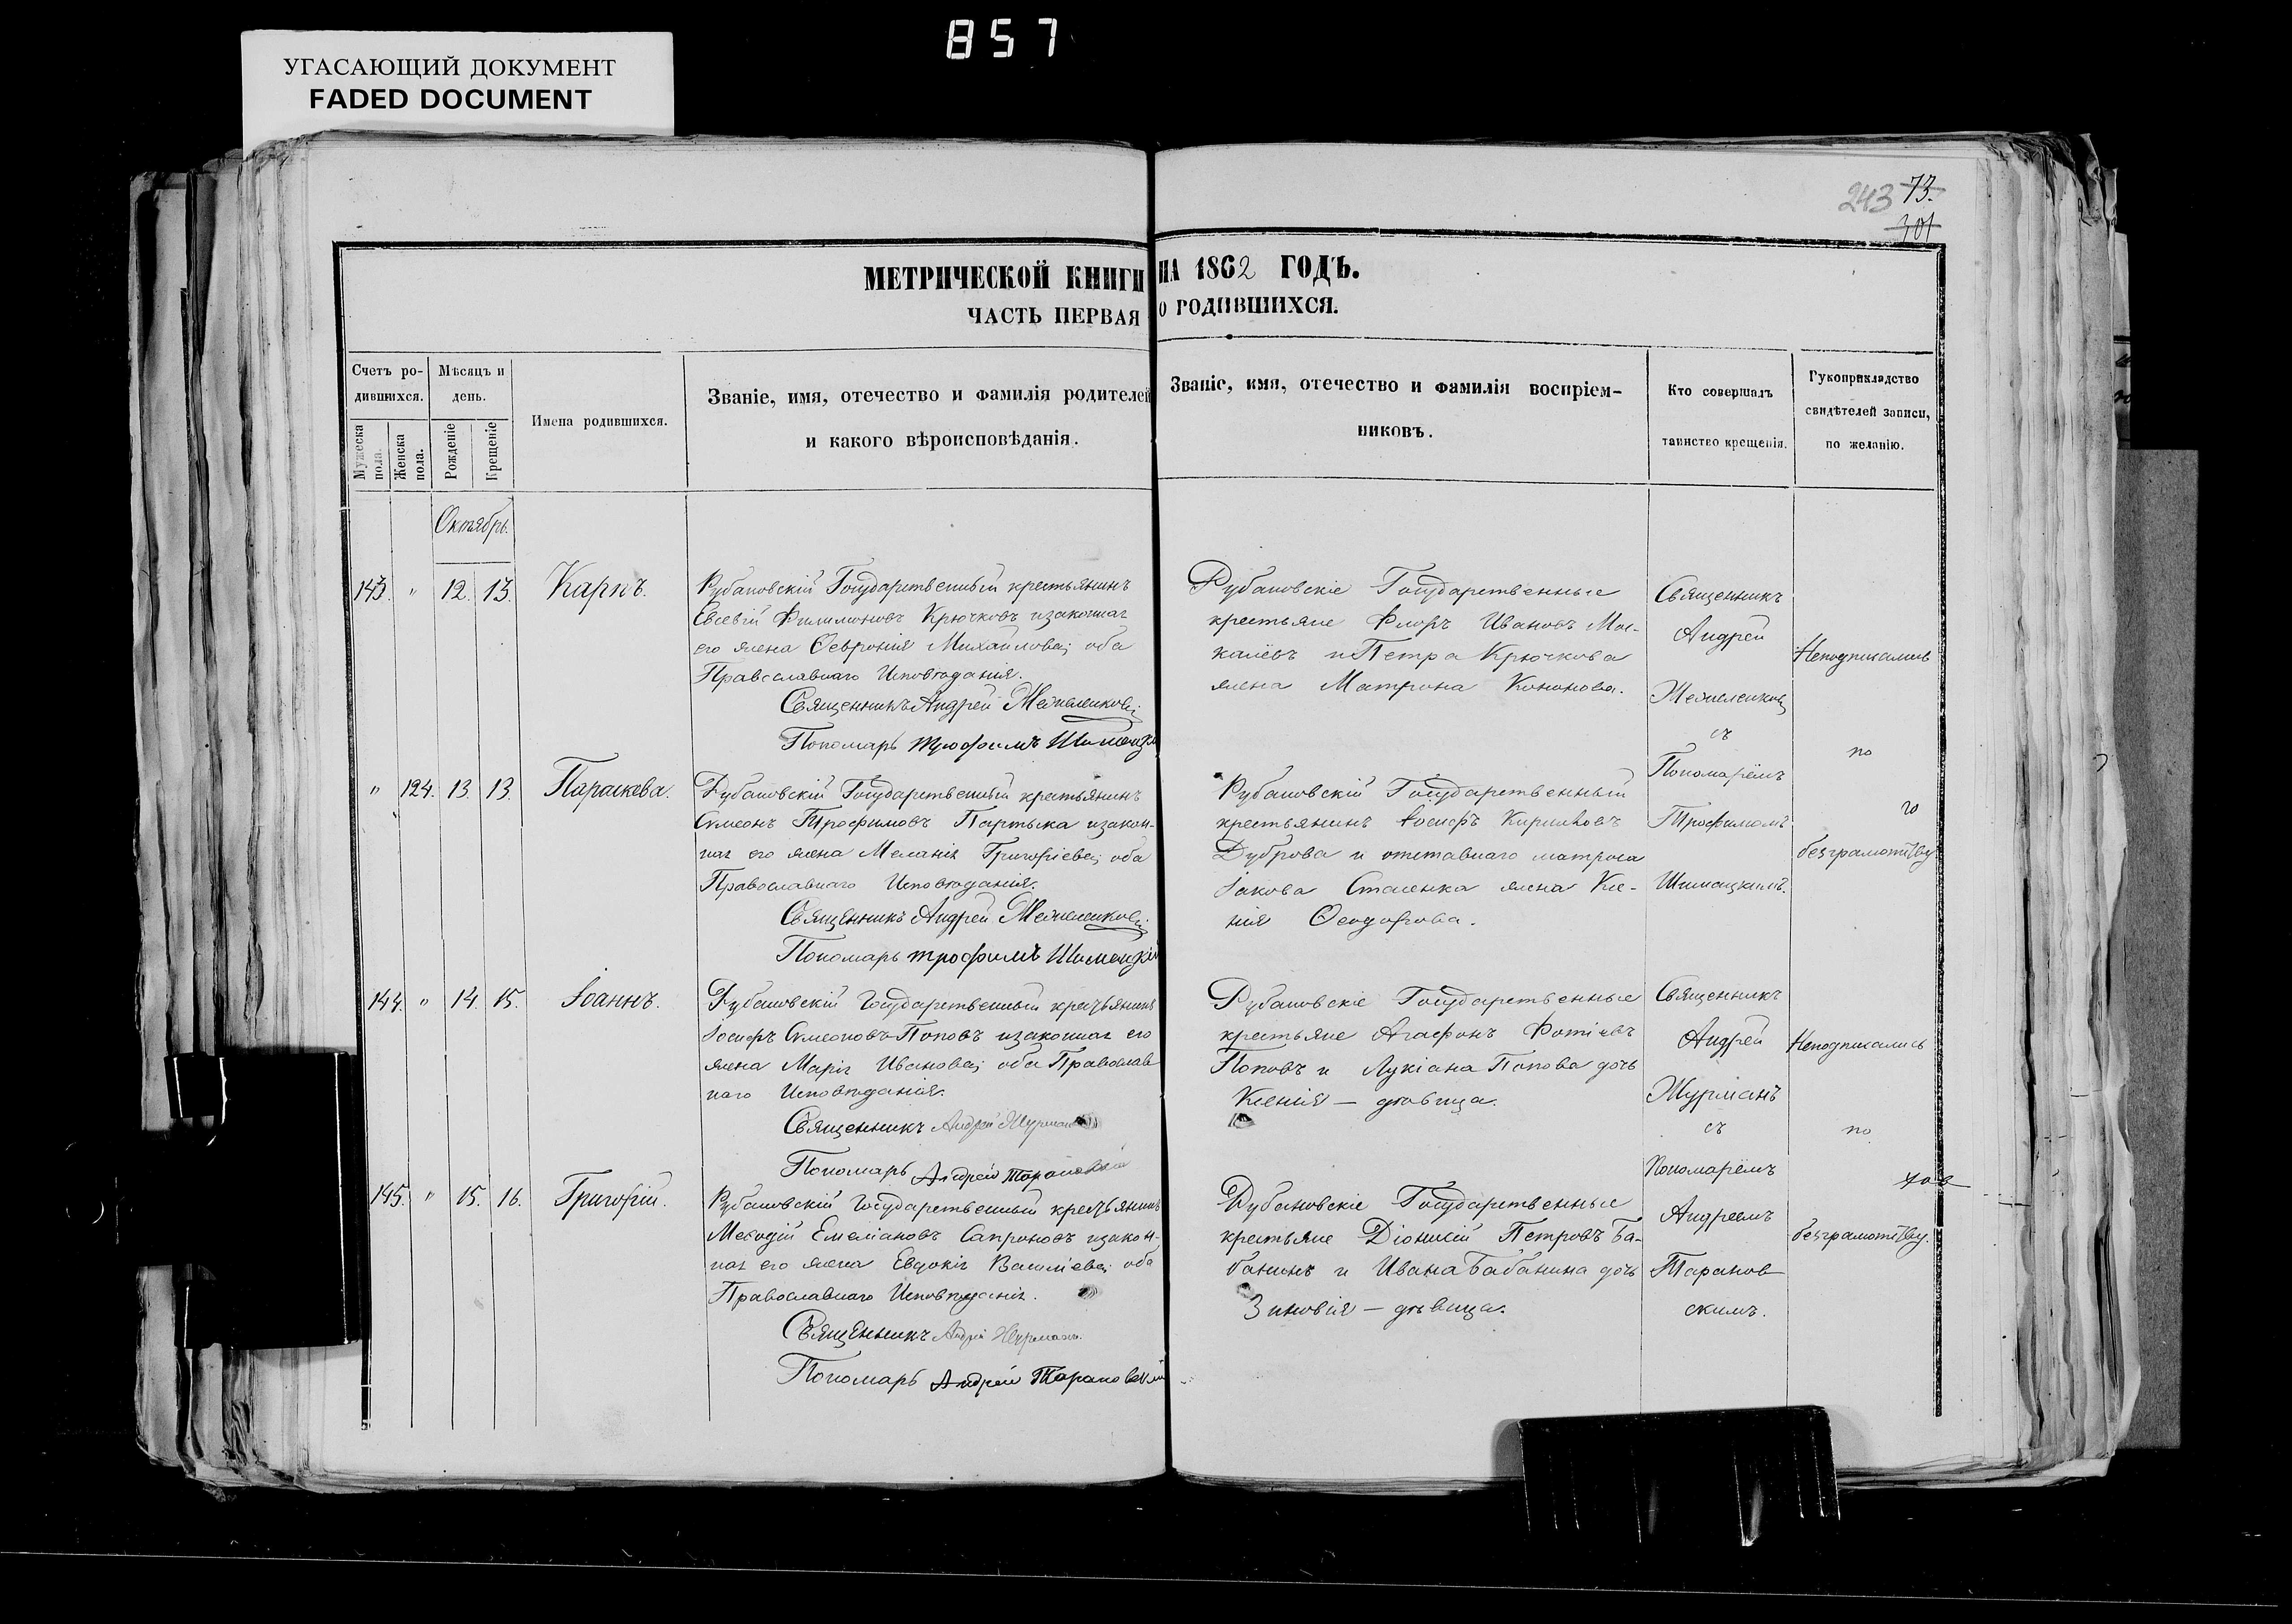 857
УГАСАЮЩИЙ ДОКУМЕНТ
FADED DOCUMENT
243 73.
301
МЕТРИЧЕСКОЙ КНИГИ НА 1862 ГОДЪ.
ЧАСТЬ ПЕРВАЯ О РОДИВШИХСЯ.
Счетъ ро-
дившихся.
Мужеска пола.
Женска пола.
Мѣсяцъ и
день.
Рожденіе
Крещеніе
Имена родившихся.
Званіе, имя, отечество и фамилія родителей
и какого вѣроисповѣданія.
Званіе, имя, отечество и фамилія воспріем-
никовъ.
Кто совершалъ
таинство крещенія.
Рукоприкладство
свидѣтелей записи,
по желанію.
Октябрь.
143. " 12. 13. Карпъ.
Рубановскій Государственный крестьянинъ
Евсевій Филимоновъ Крючковъ изаконная
его жена Ѳевронія Михайлова; оба
Православнаго Исповѣданія.
Священникъ Андрей
Пономарь Трофимъ
Рубановскіе Государственные
крестьяне Флоръ Ивановъ Мос-
калёвъ и Петра Крючкова
жена Матрона Кононова.
Священникъ
Андрей
съ
Пономарёмъ
Трофимомъ
Неподписались
по
безграмотству
" 124. 13. 13. Параскева.
Рубановскій Государственный крестьянинъ
Симеонъ Трофимовъ Партыка изакон-
ная его жена Меланія Григоріева; оба
Православнаго Исповѣданія.
Священникъ Андрей
Пономарь Трофимъ
Рубановскій Государственный
крестьянинъ Іосифъ Кирилловъ
Дуброва и отставнаго матроса
Іакова жена Ксе-
нія Ѳеодорова.
144. " 14. 15. Іоаннъ.
Рубановскій Государственный крестьянинъ
Іосифъ Симеоновъ Поповъ изаконная его
жена Марія Иванова; оба Православ
наго Исповѣданія.
Священникъ Андрей Журманъ
Пономарь Андрей Тарановскій
Рубановскіе Государственные
крестьяне Агафонъ Фотіевъ
Поповъ и Лукіана Попова дочь
Ксенія — дѣвица.
Священникъ
Андрей
Журманъ
съ
Пономарёмъ
Андреемъ
Таранов
скимъ.
Неподписались
по
безграмотству.
145. " 15. 16. Григорій.
Рубановскій Государственный крестьянинъ
Меѳодій Емеліановъ Сапроновъ изакон-
ная его жена Евдокія Василіева; оба
Православнаго Исповѣданія.
Священникъ Андрей Журманъ.
Пономарь Андрей Тарановскій
Рубановскіе Государственные
крестьяне Діонисій Петровъ Ба-
банинъ и Ивана Бабанина дочь
Зиновія — дѣвица.